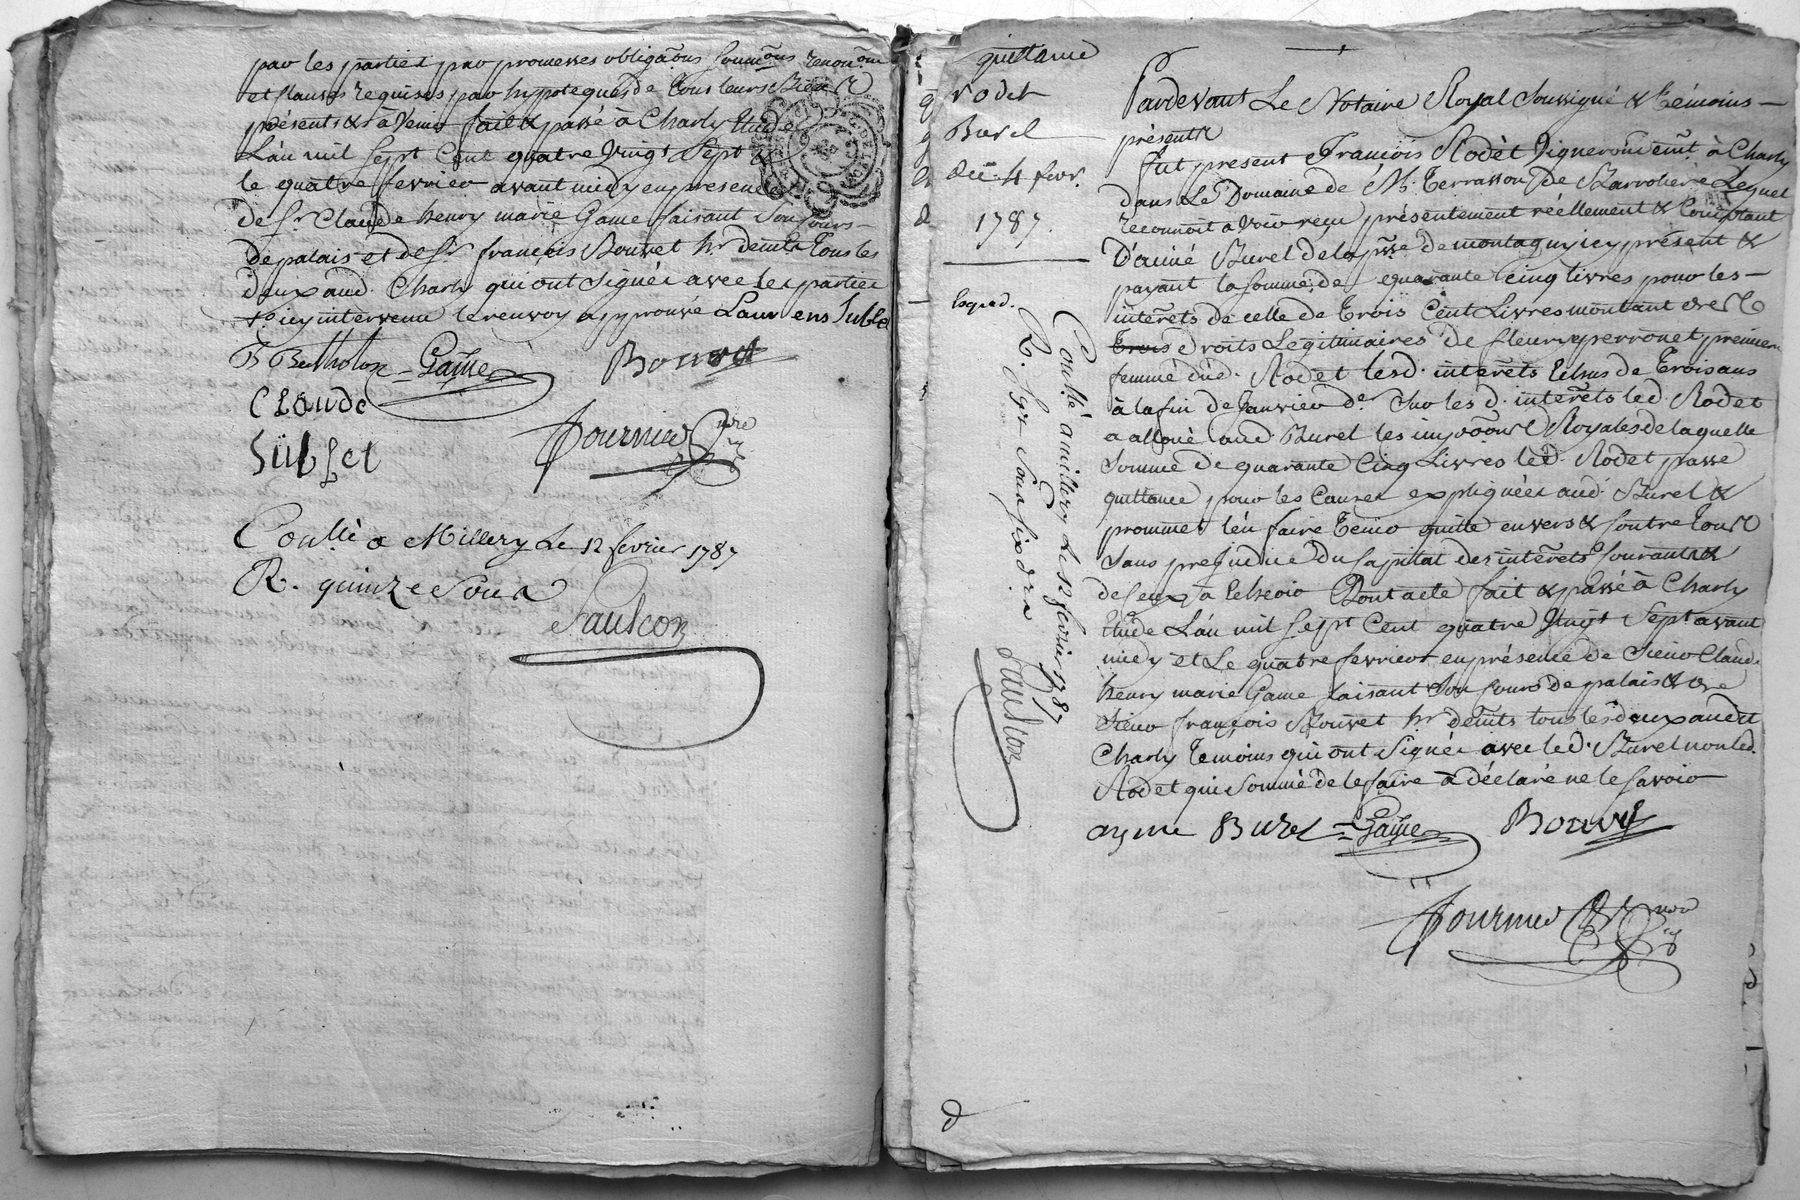 par les parties par promesses obligaõns soumõns renonõns
et clauses requises par hypoteques de tous leurs Biens
présents & à venir fait & passé à Charly Etude
L'an mil sept cent quatre vingt sept &
le quatre fevrier avant midy en presence
de Sr. Claude henry marie Game faisant Son Cours
de palais et de Sr françois Bouvet hr. demts. tous les
deux aud. Charly qui ont Signés avec les parties
icy intervenu le renvoy approuvé Laurens Subt
F Bertholon = Game Bouvet
CLaude
SubLet Fournier nore
Conllé a Millery Le 12 fevrier 1787
R. quinze Sous
Saulcon
quittance
rodet
Burel
du 4 fevr.
1787.
Exped.
Conllé a millery Le 12 fevrier 1787
R. Sous six drs Saulcon
Pardevant Le Notaire Royal Soussigné & témoins
présents
fut present François Rodet Vigneron demt. à Charly
dans Le Domaine de M. Terrasson de Barroliere Lequel
reconnoit avoir reçu présentement réellement & Comptant
D'aimé Burel de la psse de montagny icy présent &
payant la somme de quarante cinq livres pour les
intérêts de celle de trois Cent Livres montant des
Trois droits Légitimaires de fleury perronet premiere
femme dud. Rodet lesd. intérêts Echus de trois ans
à la fin de Janvier der. Sur les d. intérêts led. Rodet
a alloué aud. Burel les impoõns Royales de laquelle
Somme de quarante Cinq Livres led. Rodet passe
quittance pour les Causes expliquées aud. Burel &
prommet l'en faire tenir quitte envers & Contre tous
Sans prejudice du Capital des intérêts Courants &
de Ceux à Echeoir Dont acte fait & passé à Charly
Etude L'an mil sept Cent quatre Vingt Sept avant
midy et Le quatre fevrier en présence de Sieur Claude
henry marie Game faisant Son Cours de palais & de
Sieur françois Bouvet hr. demts tous les deux audit
Charly temoins qui ont Signés avec led. Burel non led.
Rodet qui Sommé de le faire a déclaré ne le savoir
ayme Burel = Game Bouvet
Fournier nore